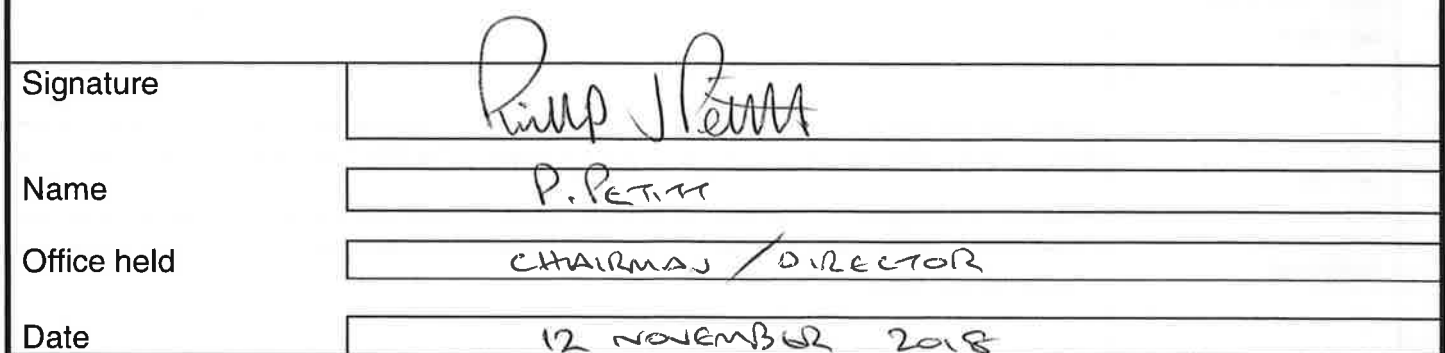 Signature Philip J Petitt
Name P. PETITT
Office held CHAIRMAN / DIRECTOR
Date 12 NOVEMBER 2018